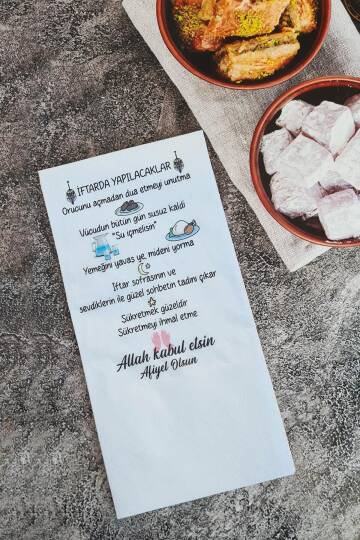 İFTARDA YAPILACAKLAR
Orucunu açmadan dua etmeyi unutma
Vücudun bütün gün susuz kaldı
"Su içmelisin"
Yemeğini yavaş ye, mideni yorma
İftar sofrasının ve
sevdiklerin ile güzel sohbetin tadını çıkar
Şükretmek güzeldir
Şükretmeyi ihmal etme
Allah kabul elsin
Afiyet Olsun